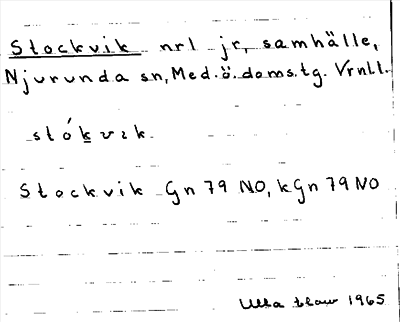 Stockvik nrl jr, samhälle,
Njurunda sn, Med. ö. doms.tg. Vrnll.
stókvik.
Stockvik Gn 79 NO, kGn 79 NO
Ulla 1965